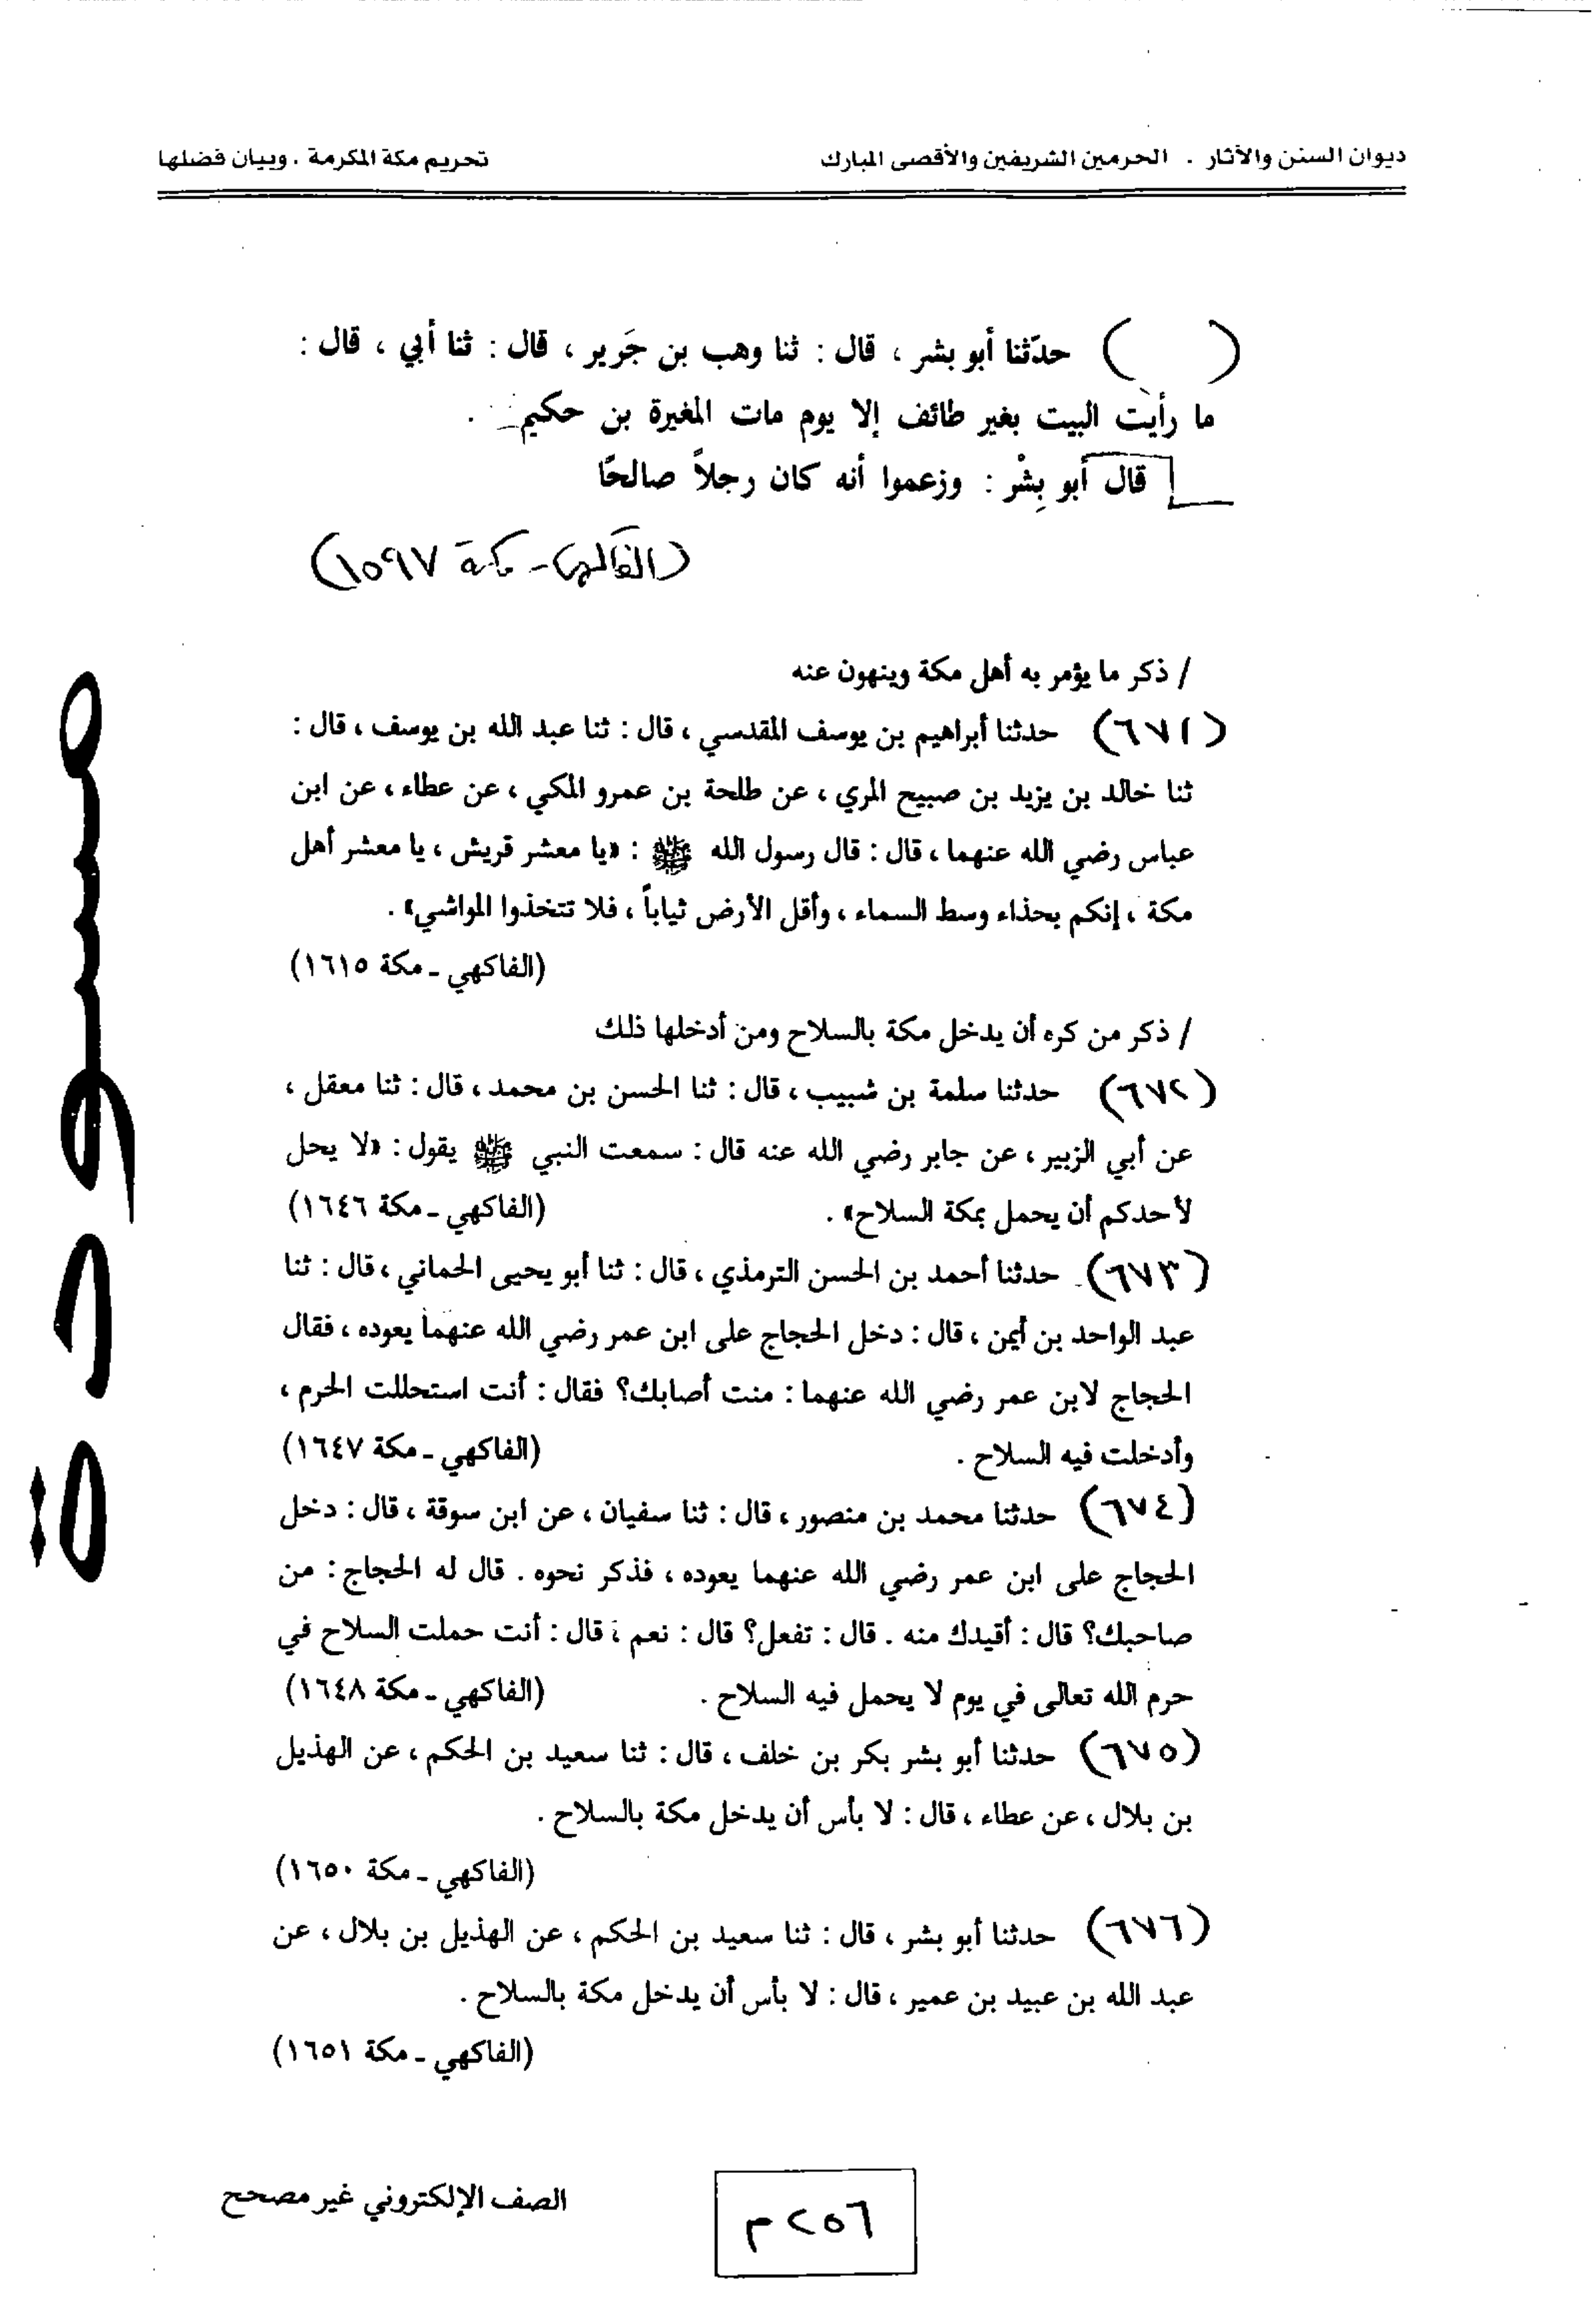 ديوان السنن والآثار . الحرمين الشريفين والأقصى المبارك تحريم مكة المكرمة . وبيان فضلها
( ) حدّثنا أبو بشر ، قال : ثنا وهب بن جَرير ، قال : ثنا أبي ، قال :
ما رأيت البيت بغير طائف إلا يوم مات المغيرة بن حكيم .
قال أبو بِشْر : وزعموا أنه كان رجلاً صالحًا
(الفاكهي - مكة ١٥٩٧)
/ ذكر ما يؤمر به أهل مكة وينهون عنه
(٦٧١) حدثنا أبراهيم بن يوسف المقدسي ، قال : ثنا عبد الله بن يوسف ، قال :
ثنا خالد بن يزيد بن صبيح المري ، عن طلحة بن عمرو المكي ، عن عطاء ، عن ابن
عباس رضي الله عنهما ، قال : قال رسول الله ﷺ : «يا معشر قريش ، يا معشر أهل
مكة ، إنكم بحذاء وسط السماء ، وأقل الأرض ثياباً ، فلا تتخذوا المواشي» .
(الفاكهي ـ مكة ١٦١٥)
/ ذكر من كره أن يدخل مكة بالسلاح ومن أدخلها ذلك
(٦٧٢) حدثنا سلمة بن شبيب ، قال : ثنا الحسن بن محمد ، قال : ثنا معقل ،
عن أبي الزبير ، عن جابر رضي الله عنه قال : سمعت النبي ﷺ يقول : «لا يحل
لأحدكم أن يحمل بمكة السلاح» . (الفاكهي ـ مكة ١٦٤٦)
(٦٧٣) حدثنا أحمد بن الحسن الترمذي ، قال : ثنا أبو يحيى الحماني ، قال : ثنا
عبد الواحد بن أيمن ، قال : دخل الحجاج على ابن عمر رضي الله عنهما يعوده ، فقال
الحجاج لابن عمر رضي الله عنهما : منت أصابك؟ فقال : أنت استحللت الحرم ،
وأدخلت فيه السلاح . (الفاكهي ـ مكة ١٦٤٧)
(٦٧٤) حدثنا محمد بن منصور ، قال : ثنا سفيان ، عن ابن سوقة ، قال : دخل
الحجاج على ابن عمر رضي الله عنهما يعوده ، فذكر نحوه . قال له الحجاج : من
صاحبك؟ قال : أقيدك منه . قال : تفعل؟ قال : نعم ، قال : أنت حملت السلاح في
حرم الله تعالى في يوم لا يحمل فيه السلاح . (الفاكهي ـ مكة ١٦٤٨)
(٦٧٥) حدثنا أبو بشر بكر بن خلف ، قال : ثنا سعيد بن الحكم ، عن الهذيل
بن بلال ، عن عطاء ، قال : لا بأس أن يدخل مكة بالسلاح .
(الفاكهي ـ مكة ١٦٥٠)
(٦٧٦) حدثنا أبو بشر ، قال : ثنا سعيد بن الحكم ، عن الهذيل بن بلال ، عن
عبد الله بن عبيد بن عمير ، قال : لا بأس أن يدخل مكة بالسلاح .
(الفاكهي ـ مكة ١٦٥١)
مسودة
٢٥٦ م
الصف الإلكتروني غير مصحح